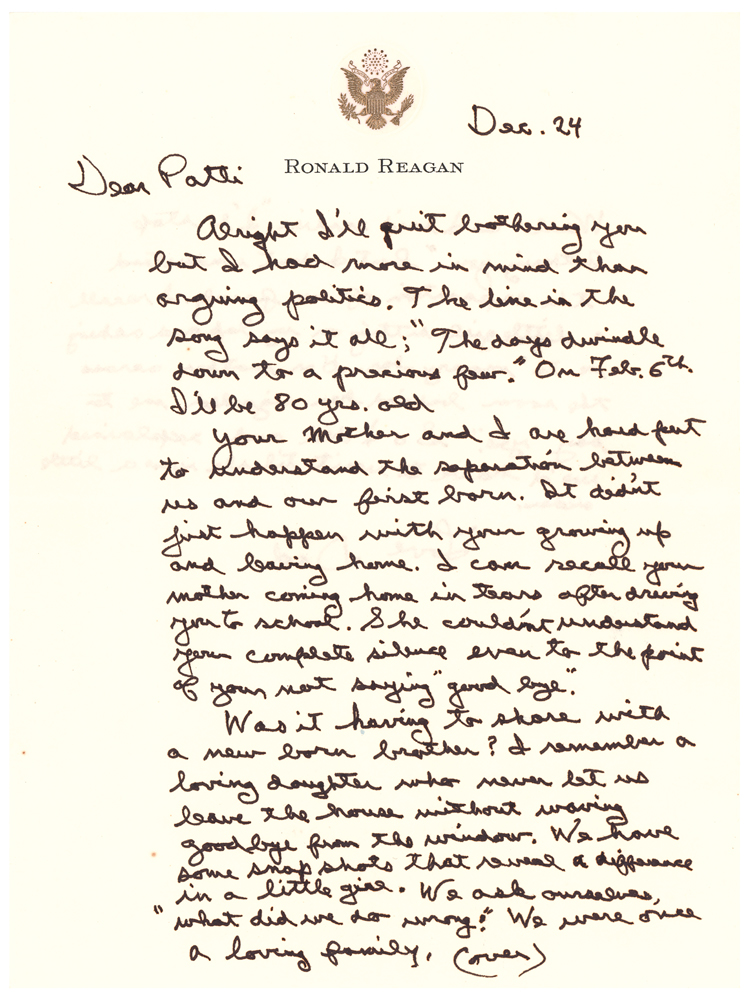 Dec. 24
RONALD REAGAN
Dear Patti
Alright I'll quit bothering you
but I had more in mind than
arguing politics. The line in the
song says it all; "The days dwindle
down to a precious few." On Feb. 6th.
I'll be 80 yrs. old
Your Mother and I are hard put
to understand the separation between
us and our first born. It didn't
just happen with your growing up
and leaving home. I can recall your
mother coming home in tears after driving
you to school. She couldn't understand
your complete silence even to the point
of your not saying "good bye".
Was it having to share with
a new born brother? I remember a
loving daughter who never let us
leave the house without waving
goodbye from the window. We have
some snap shots that reveal a difference
in a little girl. We ask ourselves,
"what did we do wrong?" We were once
a loving family. (over)